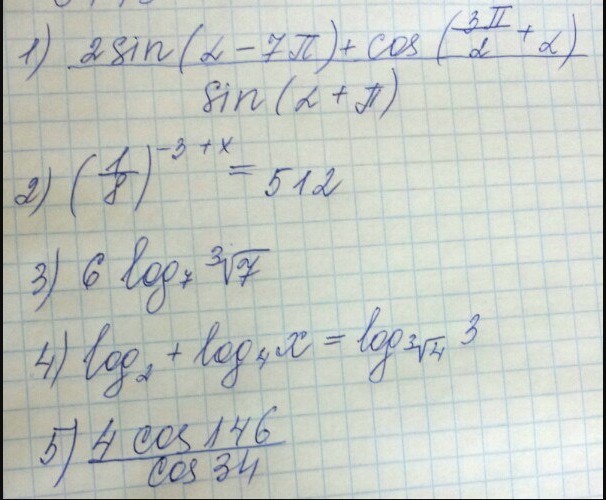 1) (2 sin(α - 7π) + cos(3π/2 + α)) / sin(α + π)
2) (1/8)^(-3 + x) = 512
3) 6 log₇ ∛7
4) log₂ + log₄ x = log_∛4 3
5) 4 cos 146 / cos 34